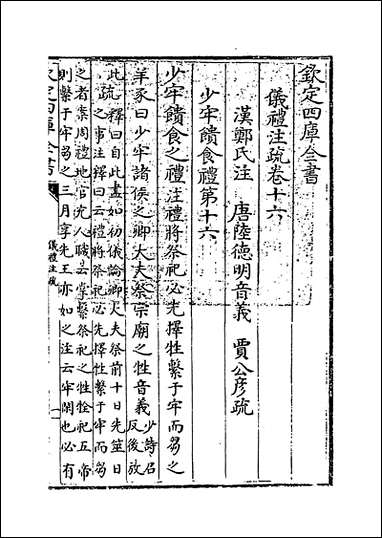 欽定四庫全書
儀禮注疏卷十六
漢鄭氏注　唐陸德明音義　賈公彦疏
少牢饋食禮第十六
少牢饋食之禮注禮將祭祀必先擇牲繫于牢而芻之
羊豕曰少牢諸侯之卿大夫祭宗廟之牲音義
少詩召
反後放
此疏釋曰自此盡如初儀論卿大夫祭前十日先筮日
之事注釋曰云禮將祭祀必先擇牲繫于牢而芻
之者案周禮地官充人職云掌繫祭祀之牲牷祀五帝
則繫于牢芻之三月享先王亦如之注云牢閑也必有
欽定四庫全書
儀禮注疏
一